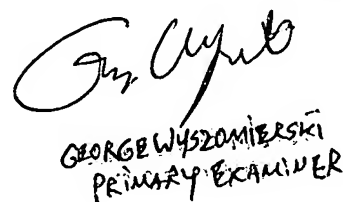 GEORGE WYSZOMIERSKI
PRIMARY EXAMINER